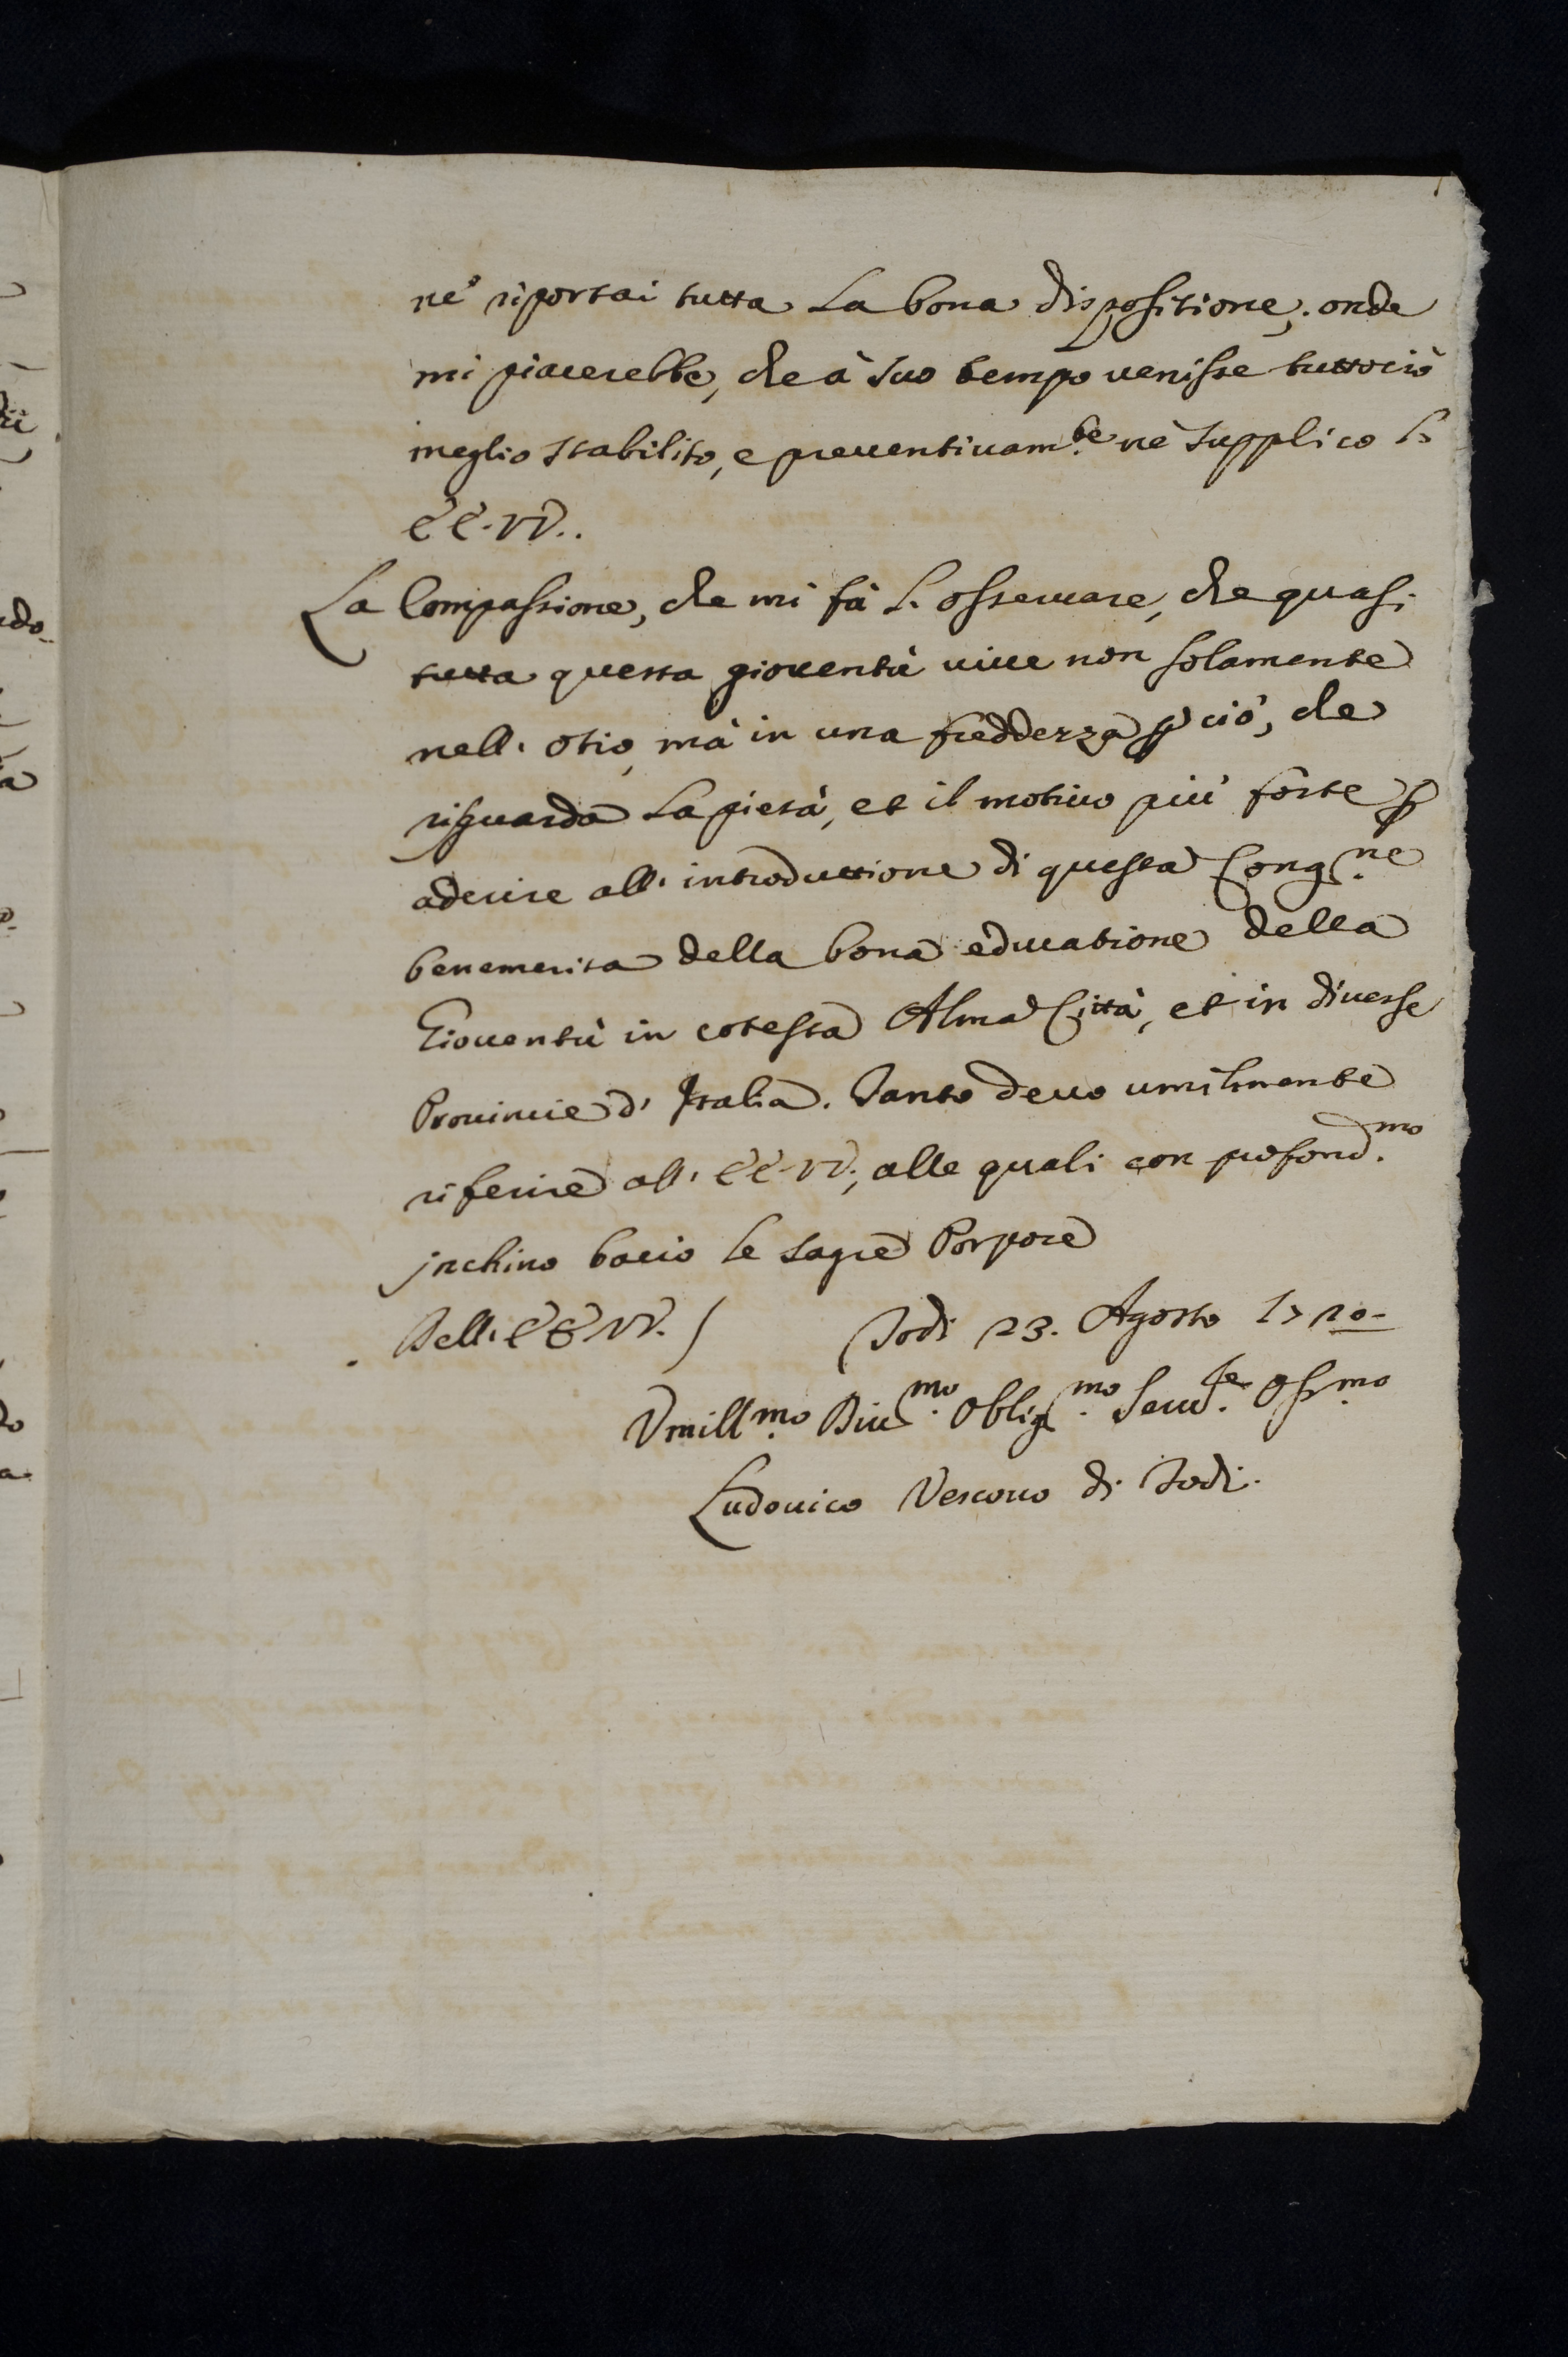 né riportai tutta La bona dispositione; onde
mi piacerebbe, che à suo tempo venisse tuttociò
meglio stabilito, e preventivam.te nè supplico L'
EE. VV..
La Compassione, che mi fà L'osservare, che quasi
tutta questa gioventù vive non solamente
nell'otio, mà in una freddezza p ciò, che
risguarda La pietà, et il motivo più forte p
aderire all'introduttione di questa Cong.ne
benemerita della bona educatione della
Gioventù in cotesta Alma Città, et in diverse
Provincie d'Italia. Tanto devo umilmente
riferire all'EE. VV., alle quali con profond.mo
inchino bacio le sagre Porpore
Dell'EE VV.
Todi 23. Agosto 1720-
Vmill.mo Div.mo Oblig.mo Serv.re Oss.mo
Ludovico Vescovo di Todi.